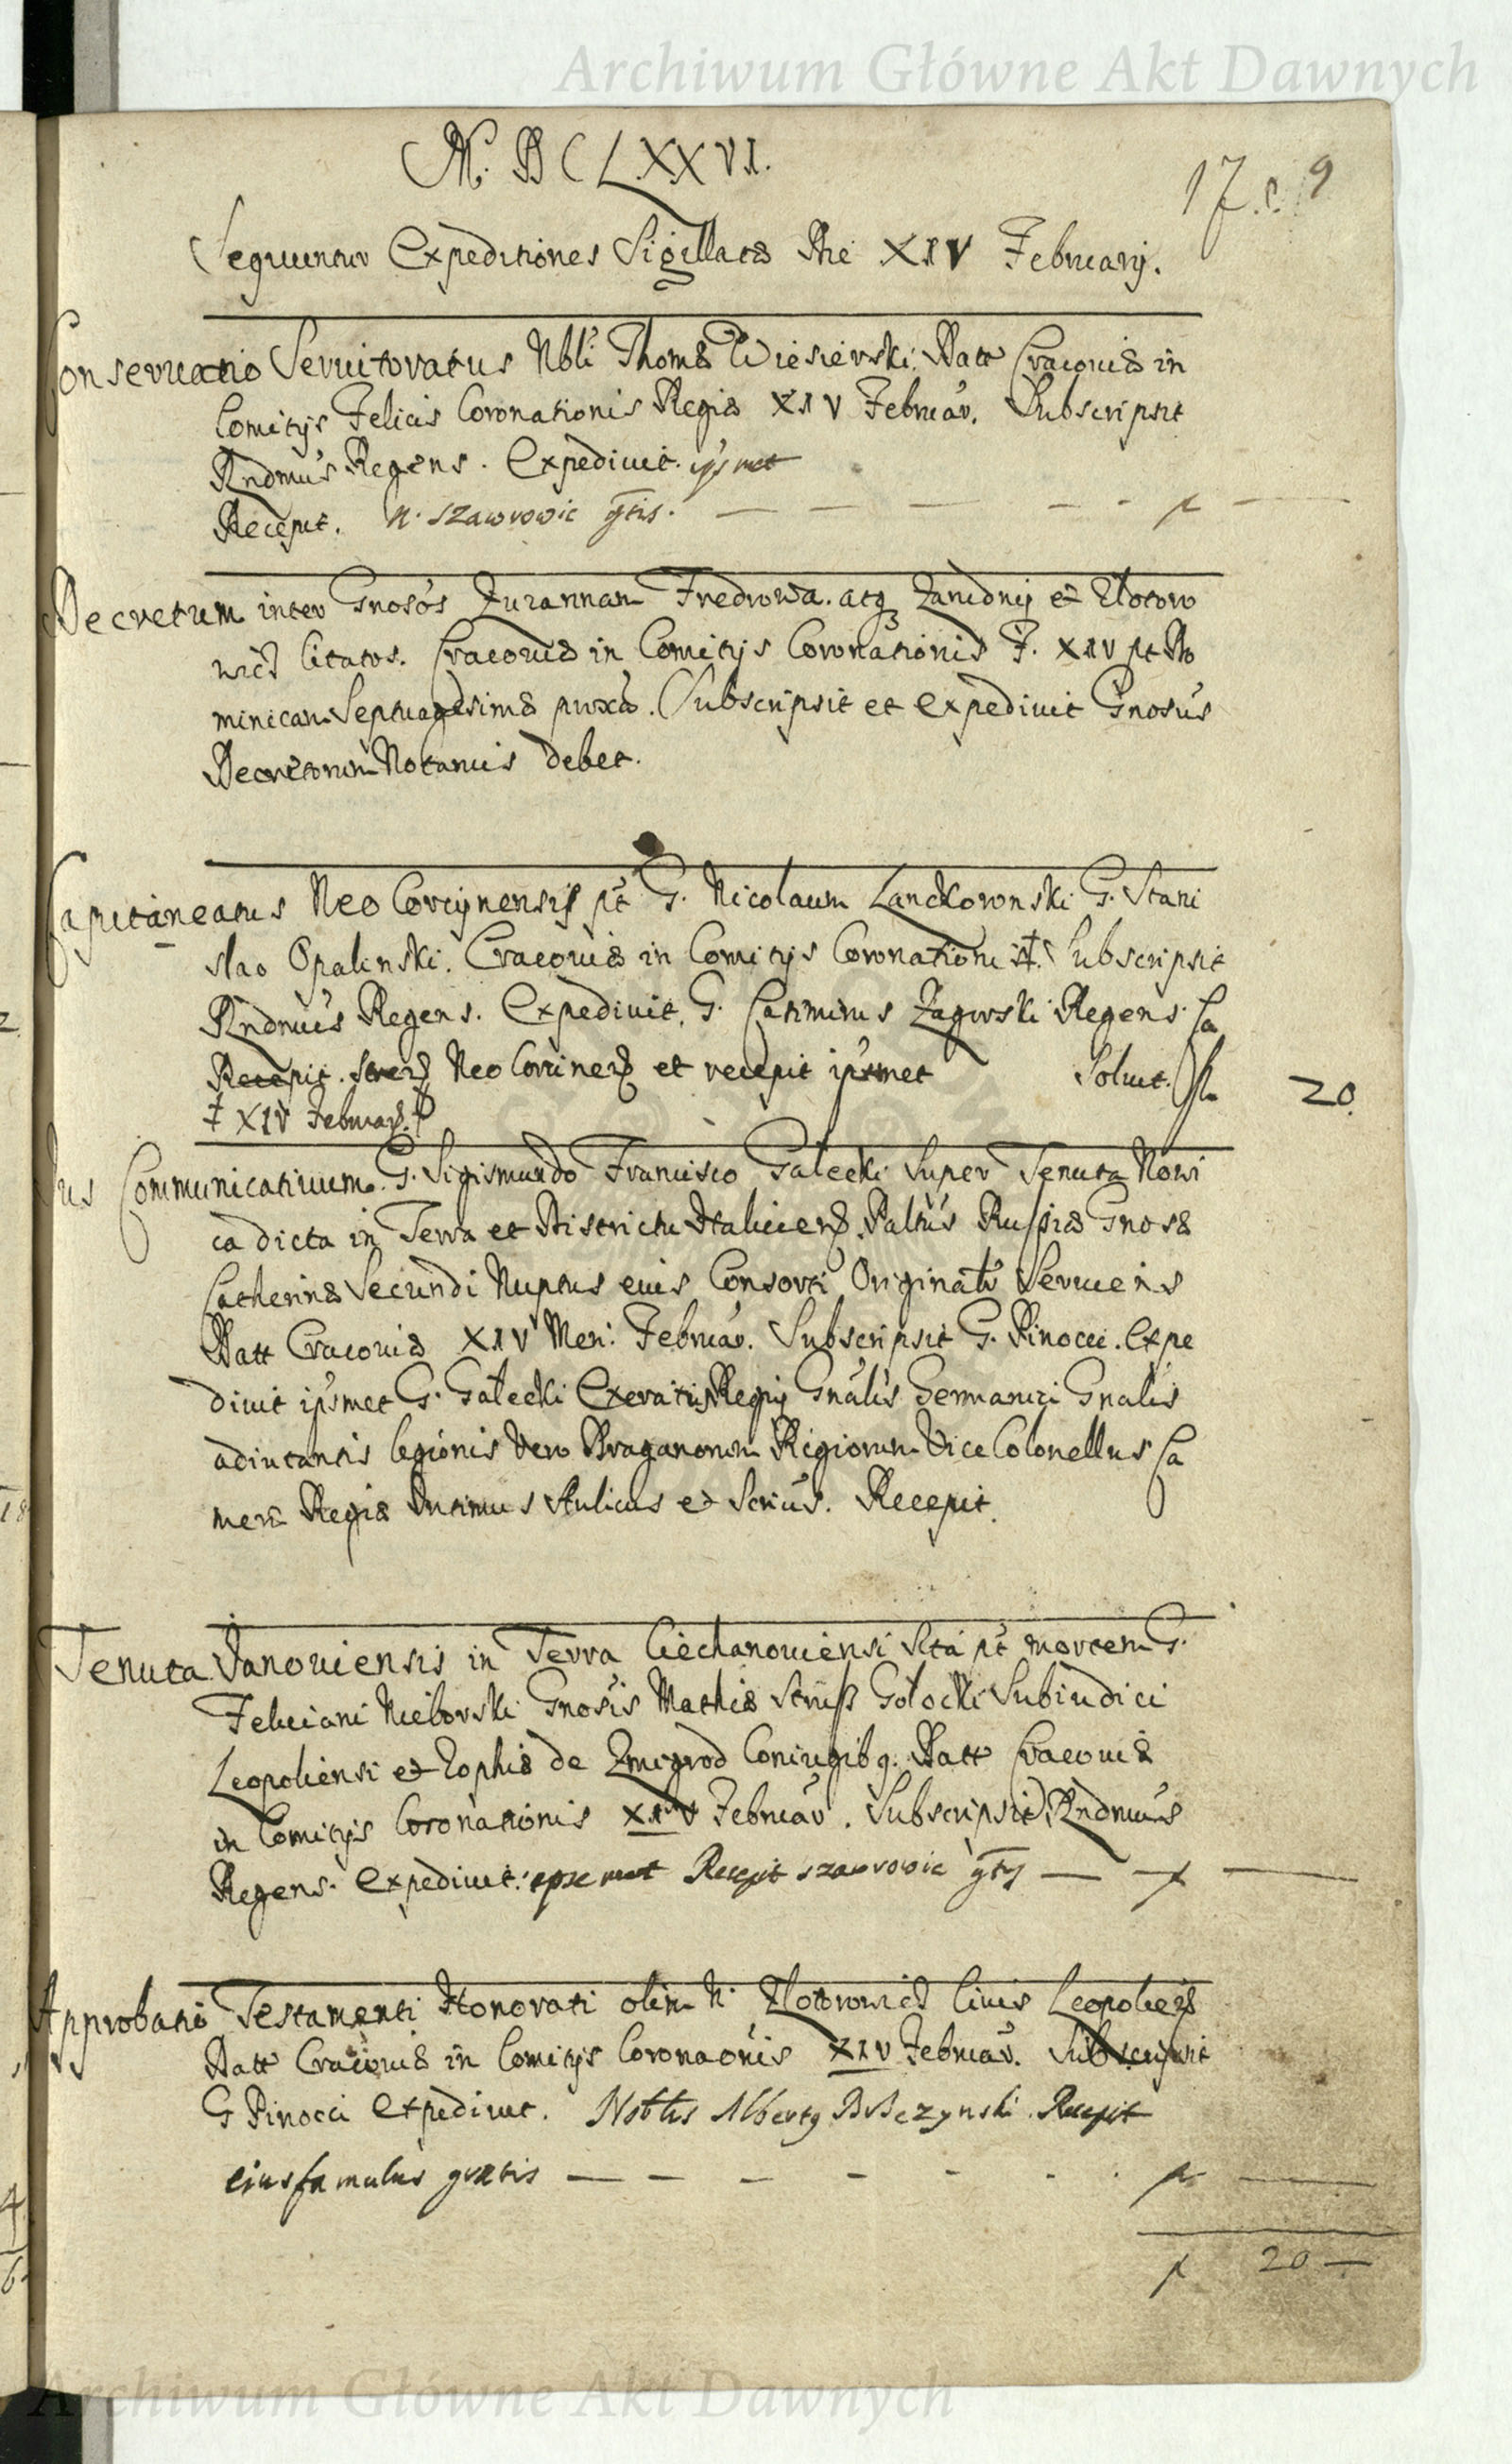 Archiwum Główne Akt Dawnych
M. D C L X X V I.
17. 9
Sequuntur Expeditiones Sigillatæ Die XIV Februarij.
Conservatio Servitoratus Nbli Thomæ Wiesierski. Datt Cracoviæ in
Comitijs Felicis Coronationis Regiæ XIV Februar. Subscripsit
Rndmus Regens. Expedivit. ipsmet
Recepit. N. Szawrowic gtis.
Decretum inter Gnosos Zuzannam Fredrowa. atq Zanidnij et Zlotoro
wicz Citatos. Cracoviæ in Comitijs Coronationis F. XIV pt Do
minicam Septuagesimæ proxa. Subscripsit et expedivit Gnosus
Decretorum Notarius debet.
Capitaneatus Neo Corcynensis pt G. Nicolaum Lanckoronski G. Stani
slao Opalinski. Cracoviæ in Comitijs Coronationis ‡. Subscripsit
Rndmus Regens. Expedivit. G. Casimirus Zagorski Regens. Ca
Recepit. Neo Corcinens et recepit ipsmet Solvit. fl 20.
‡ XIV Februar.
Jus Communicativum. G. Sigismundo Francisco Galecki Super Tenuta Nowi
ca dicta in Terra et Districtu Haliciens Paltus Russiæ Gnosæ
Catherinæ Secundi Nuptus euis Consorti Originalr Serviens
Datt Cracoviæ XIV Men: Februar. Subscripsit G. Pinocci. Expe
divit ipsmet G. Galecki Exercitus Regij Gnalis Germanici Gnalis
adiutantis legionis vero Draganorum Regiorum Vice Colonellus Ca
meræ Regiæ Intimus Aulicus et Scrius. Recepit.
Tenuta Janoviensis in Terra Ciechanoviensi Sita pt mortem G.
Feliciani Nieborski Gnosis Mathiæ Struß Golocki Subiudici
Leopoliensi et Zophiæ de Zmigrod Coniugibq. Datt Cracoviæ
in Comitijs Coronationis XIV Februar. Subscripsit Rndmus
Regens. Expedivit: ipse met Recepit Szawrowic gtis
Approbatio Testamenti Honorati olim N. Zlotorowicz Civis Leopoliens
Datt Cracoviæ in Comitijs Coronaonis XIV Februar. Subscripsit
G Pinocci Expedivit. Nobilis Albertq Recepit
eius famulus gratis
20
Archiwum Główne Akt Dawnych